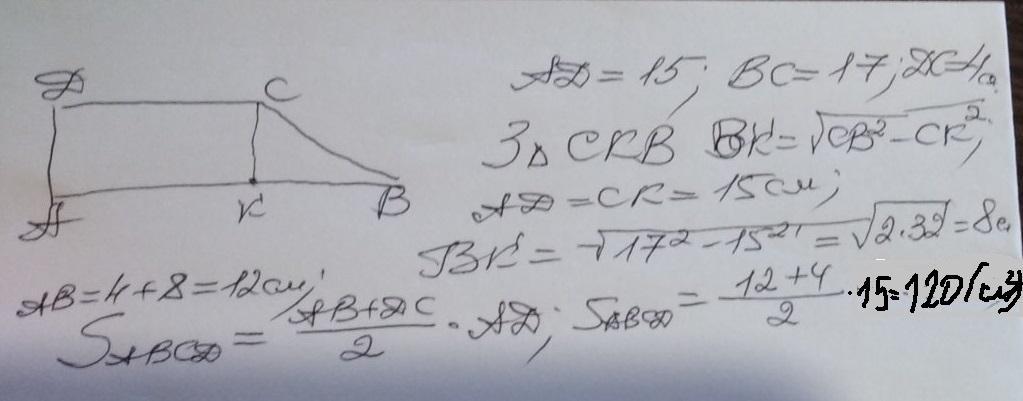 D C
A K B
AD = 15; BC = 17; DC = 4
З Δ CKB BK = √CB² - CK²;
AD = CK = 15см;
BK = √17² - 15² = √2·32 = 8с
AB = 4 + 8 = 12см;
S_ABCD = (AB + DC)/2 · AD; S_ABCD = (12 + 4)/2 · 15 = 120 (см²)